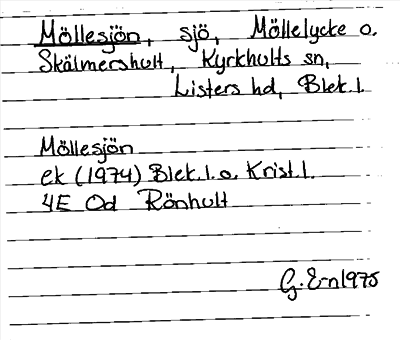 Möllesjön, sjö, Möllelycke o.
Skälmershult, Kyrkhults sn,
Listers hd, Blek.l.
Möllesjön
ek (1974) Blek.l. o. Krist.l.
4E 0d Rönhult
G. Ern 1975